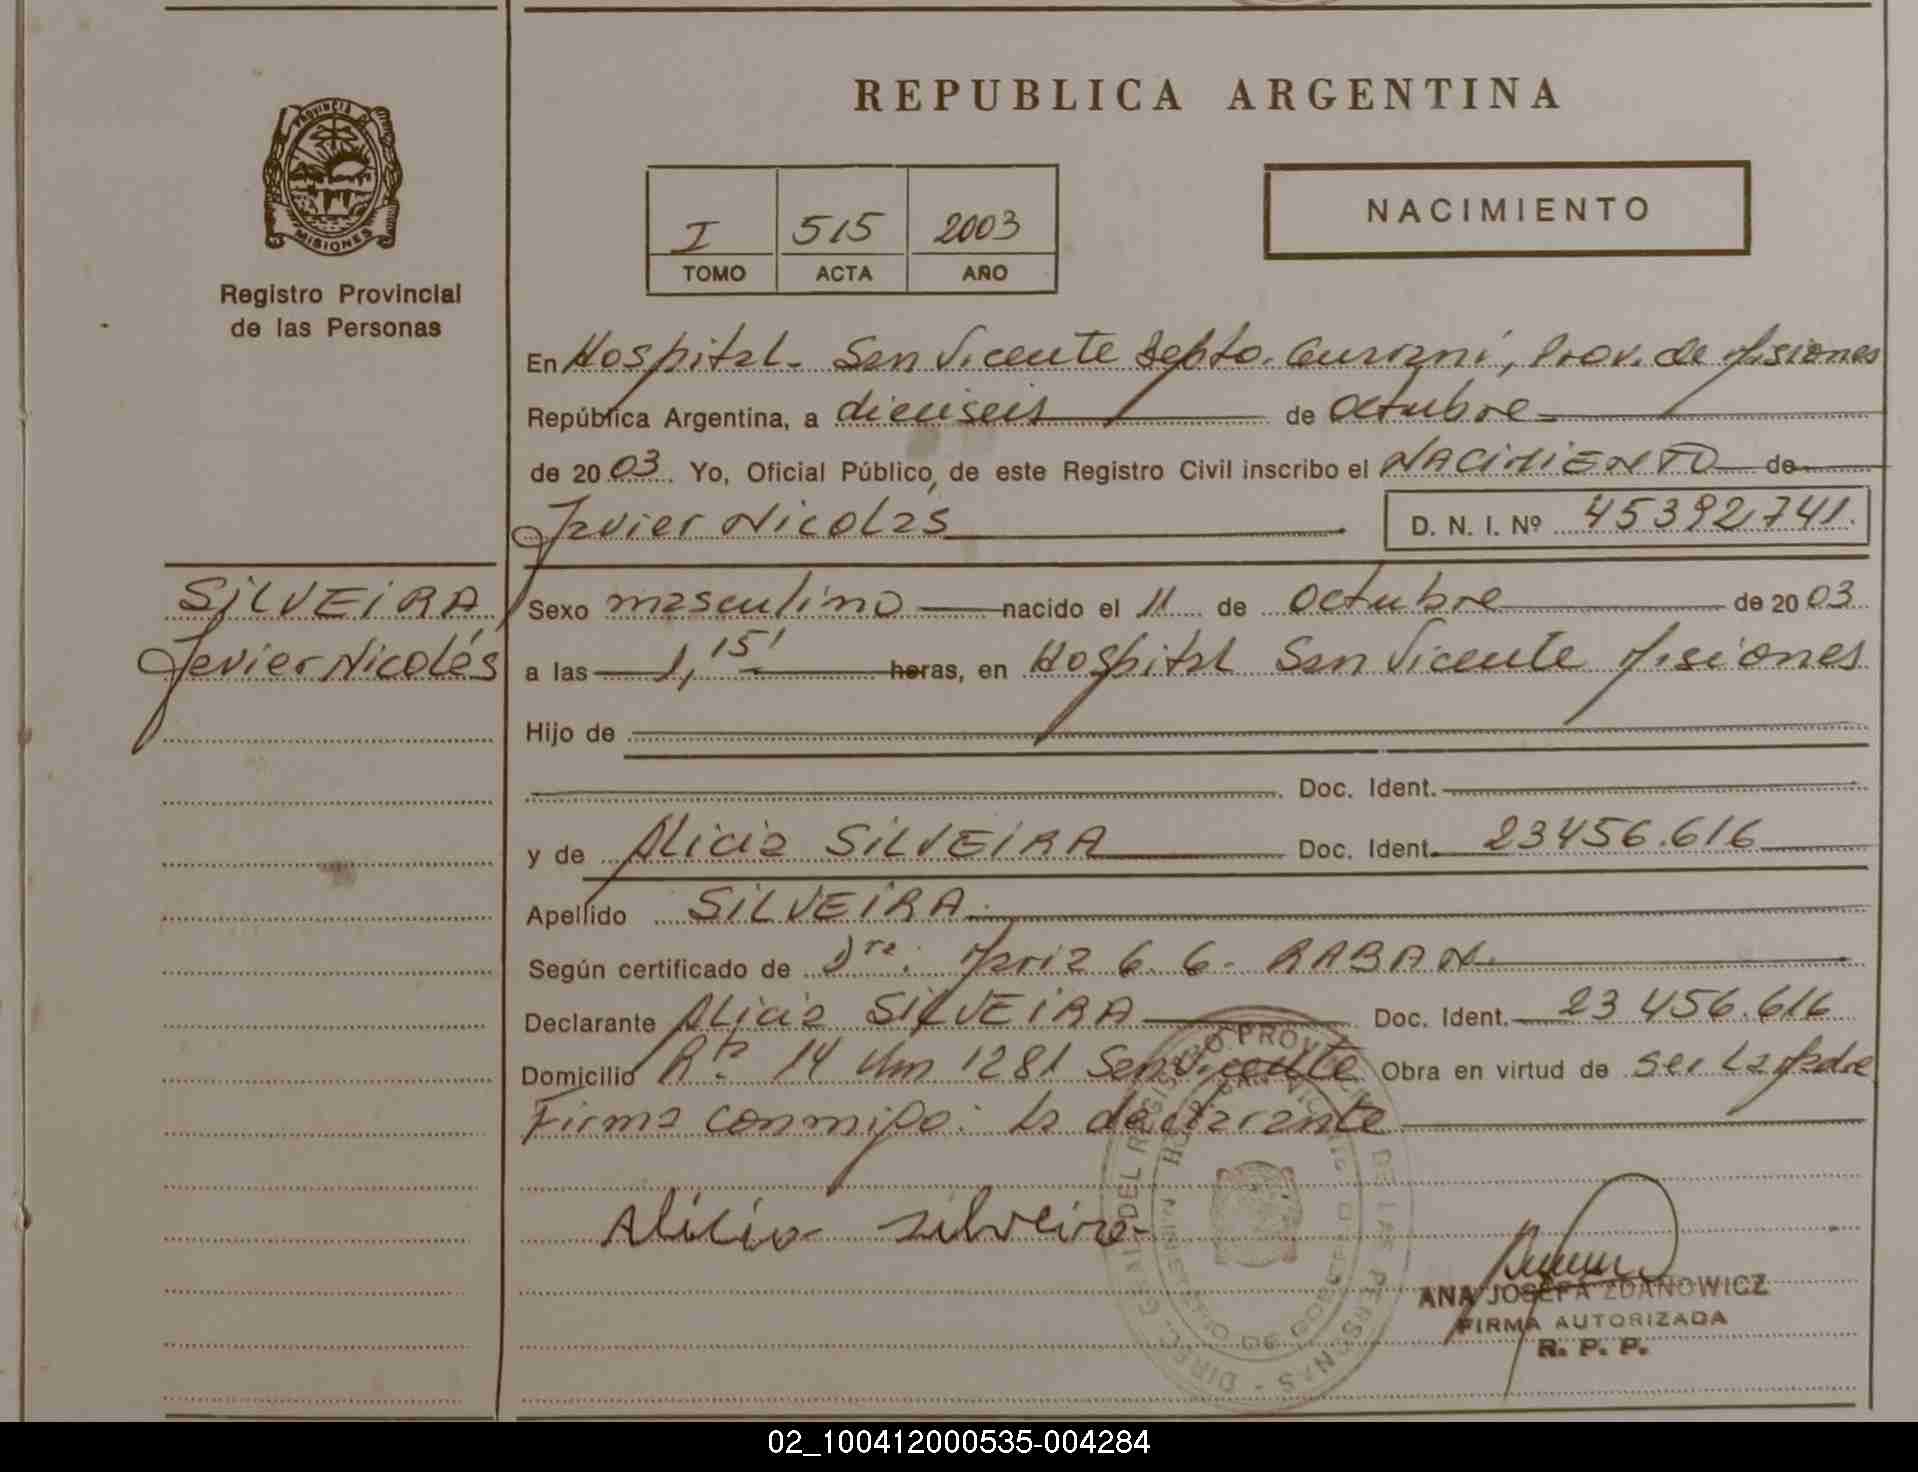 REPUBLICA ARGENTINA
PROVINCIA DE
MISIONES
Registro Provincial
de las Personas
I 515 2003
TOMO ACTA AÑO
NACIMIENTO
En Hospital San Vicente Depto. Guaraní, Prov. de Misiones
República Argentina, a dieciseis de Octubre
de 2003. Yo, Oficial Público, de este Registro Civil inscribo el NACIMIENTO de
Javier Nicolás
D. N. I. Nº 45392741.
SILVEIRA
Javier Nicolás
Sexo masculino nacido el 11 de Octubre de 2003
a las 1,15' horas, en Hospital San Vicente Misiones
Hijo de
Doc. Ident.
y de Alicia SILVEIRA Doc. Ident. 23456.616
Apellido SILVEIRA.
Según certificado de Dra. María G. G. RABAN.
Declarante Alicia SILVEIRA Doc. Ident. 23 456.616
Domicilio Rta. 14 Km 1281 San Vicente Obra en virtud de ser La Madre
Firma conmigo: la declarante
Alicia Silveira
ANA JOSEFA ZDANOWICZ
FIRMA AUTORIZADA
R. P. P.
02_100412000535-004284